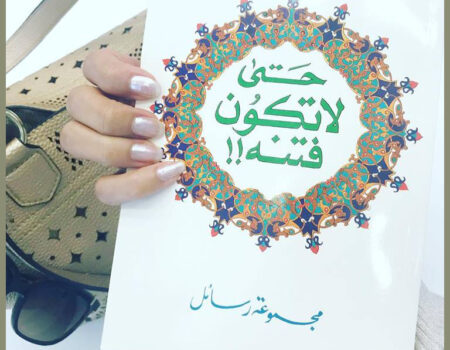 حتى
لا تكون
فتنه!!
مجموعة رسائل